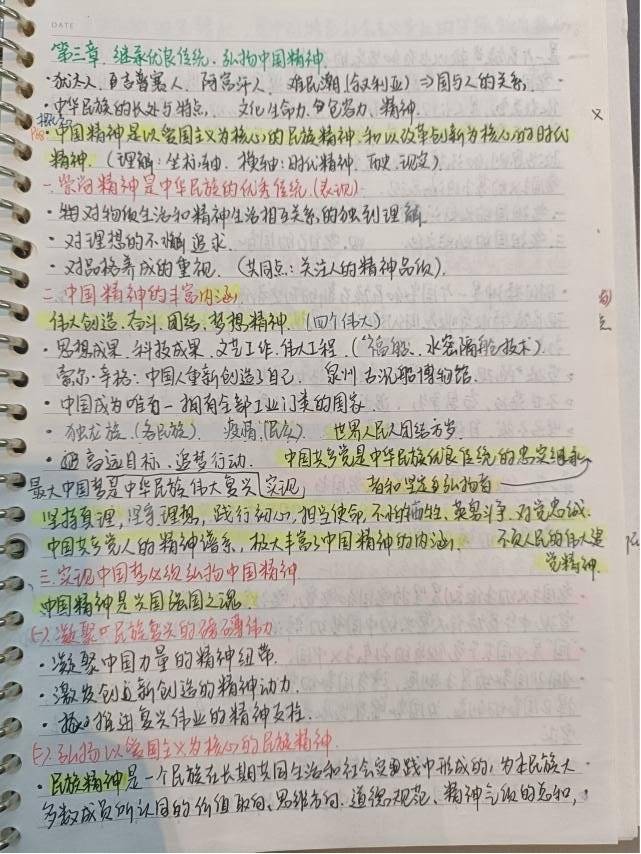 DATE
第三章 继承优良传统 弘扬中国精神
·犹太人 百吉普赛人 阿富汗人 难民潮(叙利亚)⇒国与人的关系
·中华民族的长处与特点 文化生命力 包容力 精神
·中国精神是以爱国主义为核心的民族精神和以改革创新为核心的时代
精神 (理解:坐标轴 横轴:时代精神 历史 现实)
一、崇尚精神是中华民族的优秀传统(表现)
·对物质生活和精神生活相互关系的独到理解
·对理想的不懈追求
·对品格养成的重视 (共同点:关注人的精神品质)
二、中国精神的丰富内涵
伟大创造、奋斗、团结、梦想精神 (四个伟大)
·思想成果、科技成果、文艺工作、伟大工程 ("福船"、水密隔舱技术)
霍尔·辛格:中国人重新创造了自己 泉州古沉船博物馆
·中国成为唯一一拥有全部工业门类的国家
·独龙族(各民族) 疫情(民众) 世界人民大团结万岁
·高远目标、追梦行动 中国共产党是中华民族优良传统的忠实继承
最大中国梦是中华民族伟大复兴 实现 者和坚定弘扬者
坚持真理,坚守理想,践行初心,担当使命,不怕牺牲、英勇斗争、对党忠诚
中国共产党人的精神谱系,极大丰富了中国精神的内涵 不负人民的伟大建
党精神
三、实现中国梦必须弘扬中国精神
中国精神是兴国强国之魂
(一)凝聚中民族复兴的磅礴伟力
·凝聚中国力量的精神纽带
·激发创新创造的精神动力
·推进复兴伟业的精神支柱
(二)弘扬以爱国主义为核心的民族精神
·民族精神是一个民族在长期共同生活和社会实践中形成的,为本民族大
多数成员所认同的价值取向、思维方向、道德规范、精神气质的总和,